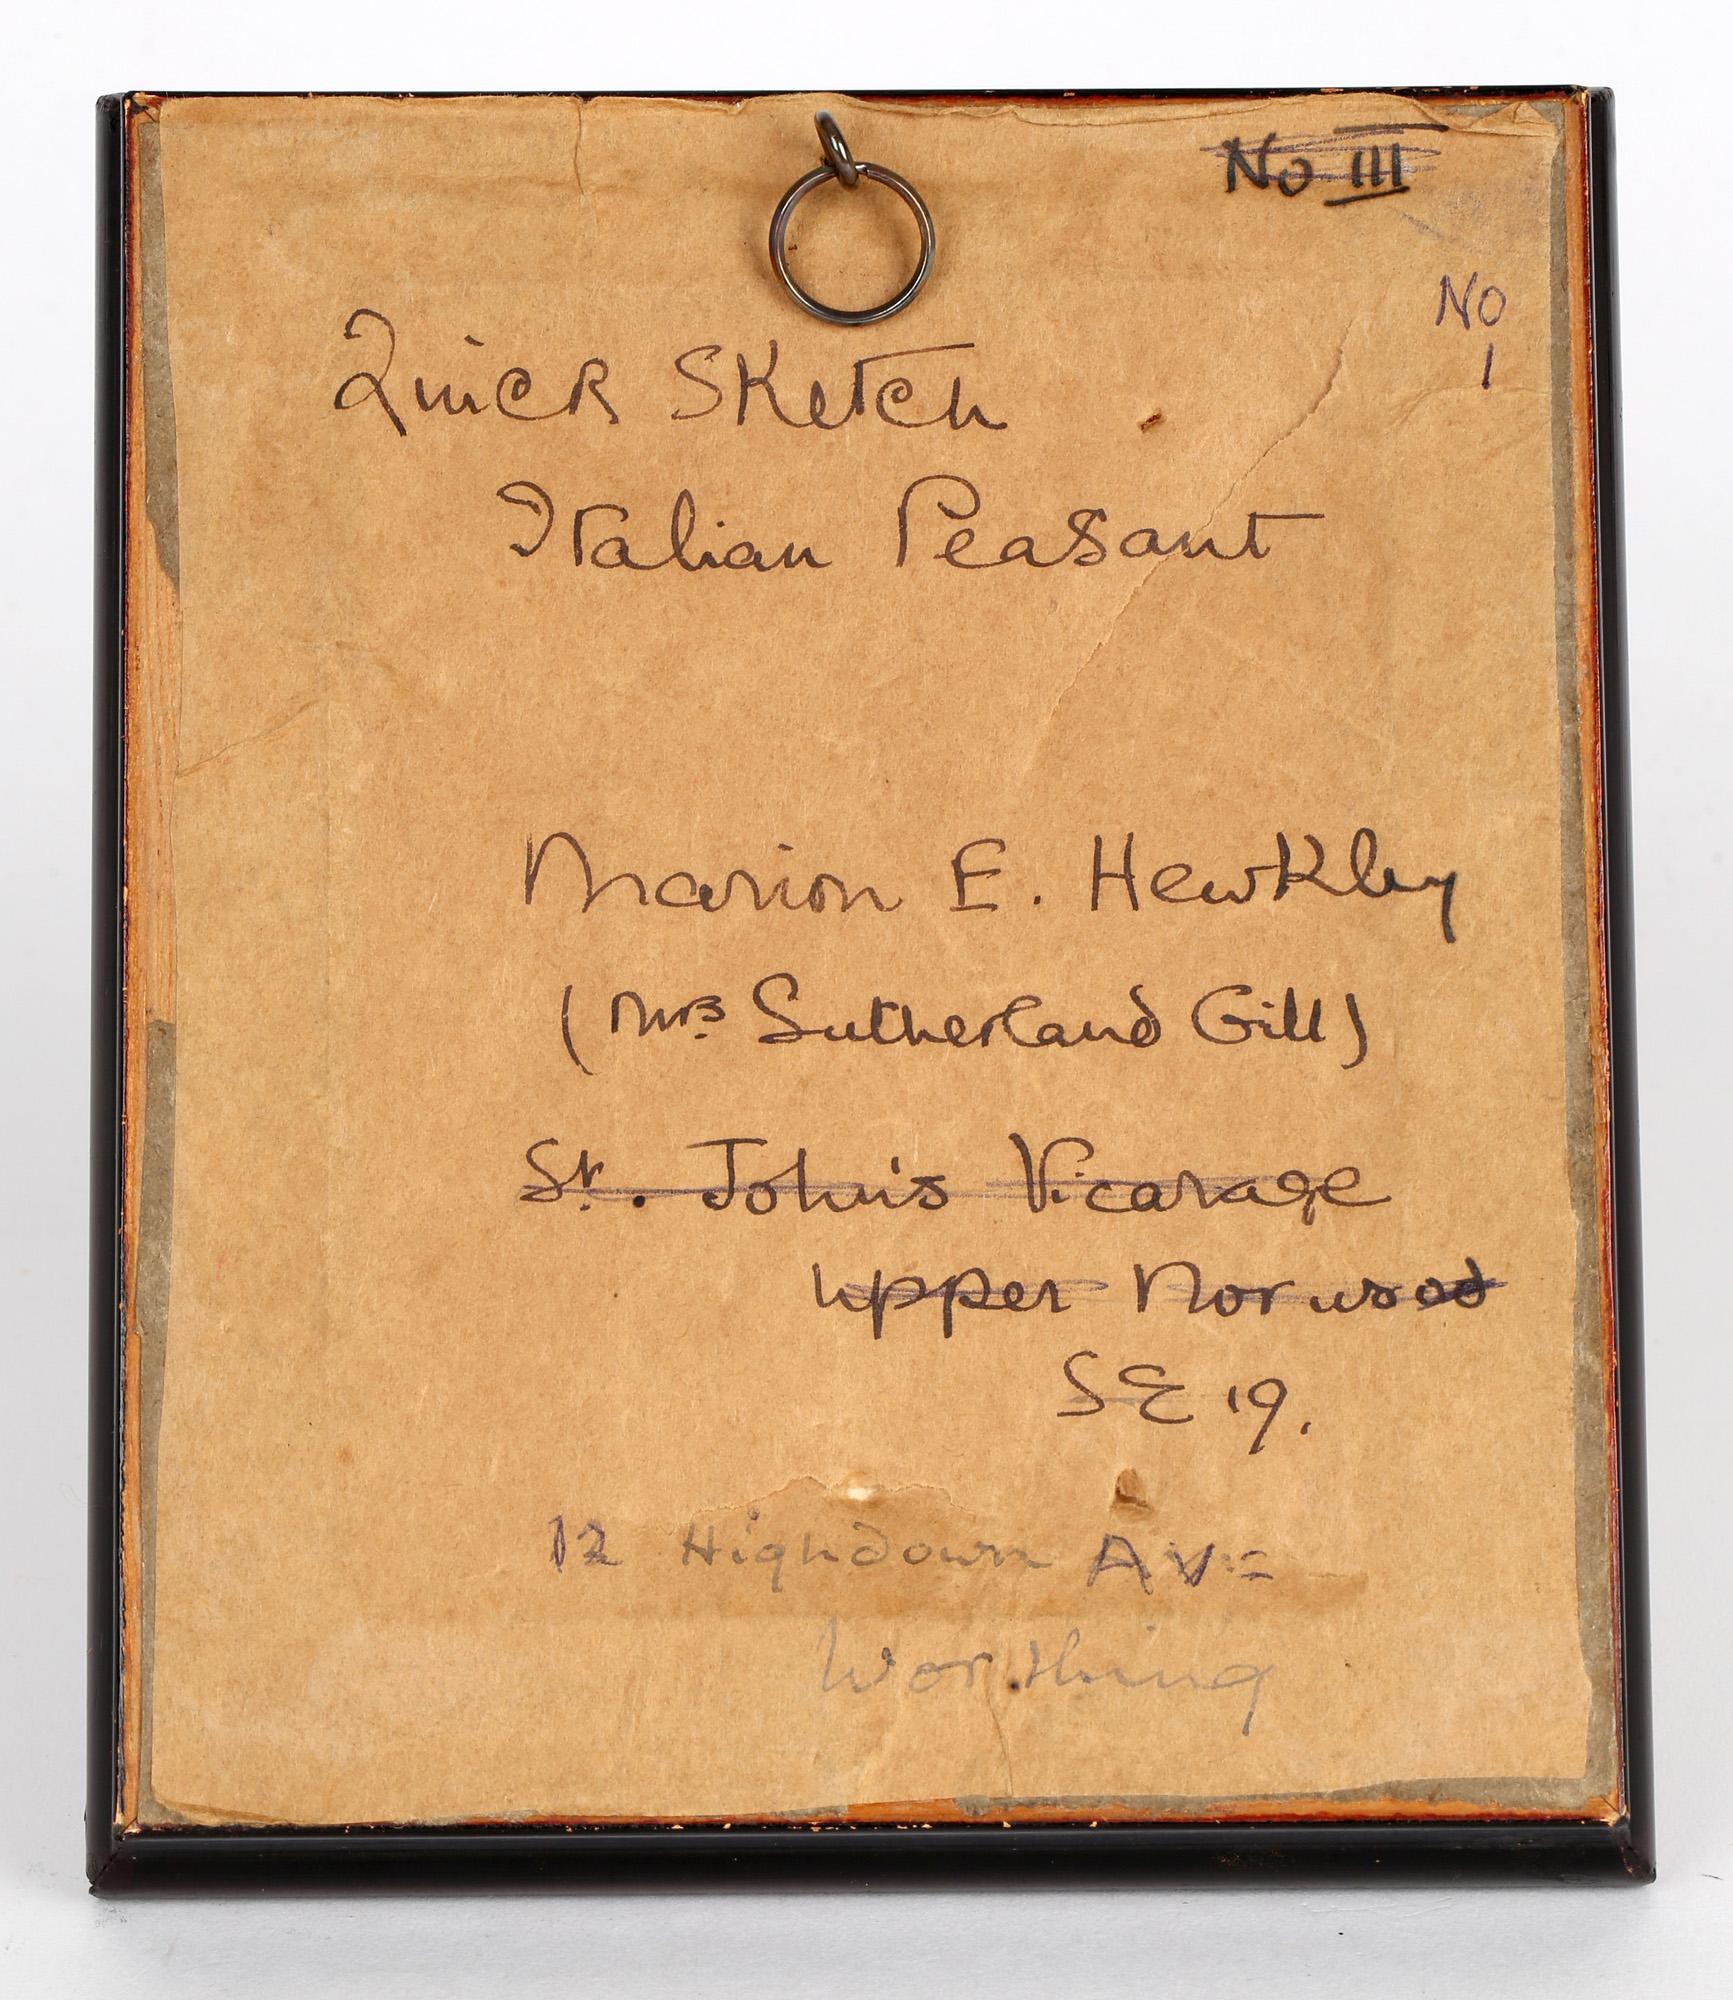 No III
No
1
Quick Sketch
Italian Peasant
Marion E. Hewkley
(Mrs Sutherland Gill)
St. John's Vicarage
Upper Norwood
SE 19.
12 Highdown Ave
Worthing